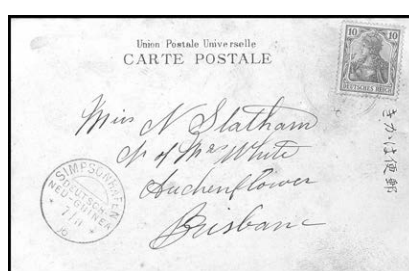 Union Postale Universelle
CARTE POSTALE
10 10
DEUTSCHES REICH
Miss N Statham
c/o Mrs White
Auchenflower
Brisbane
SIMPSONHAFEN
DEUTSCH
NEU-GUINEA
きかは便郵